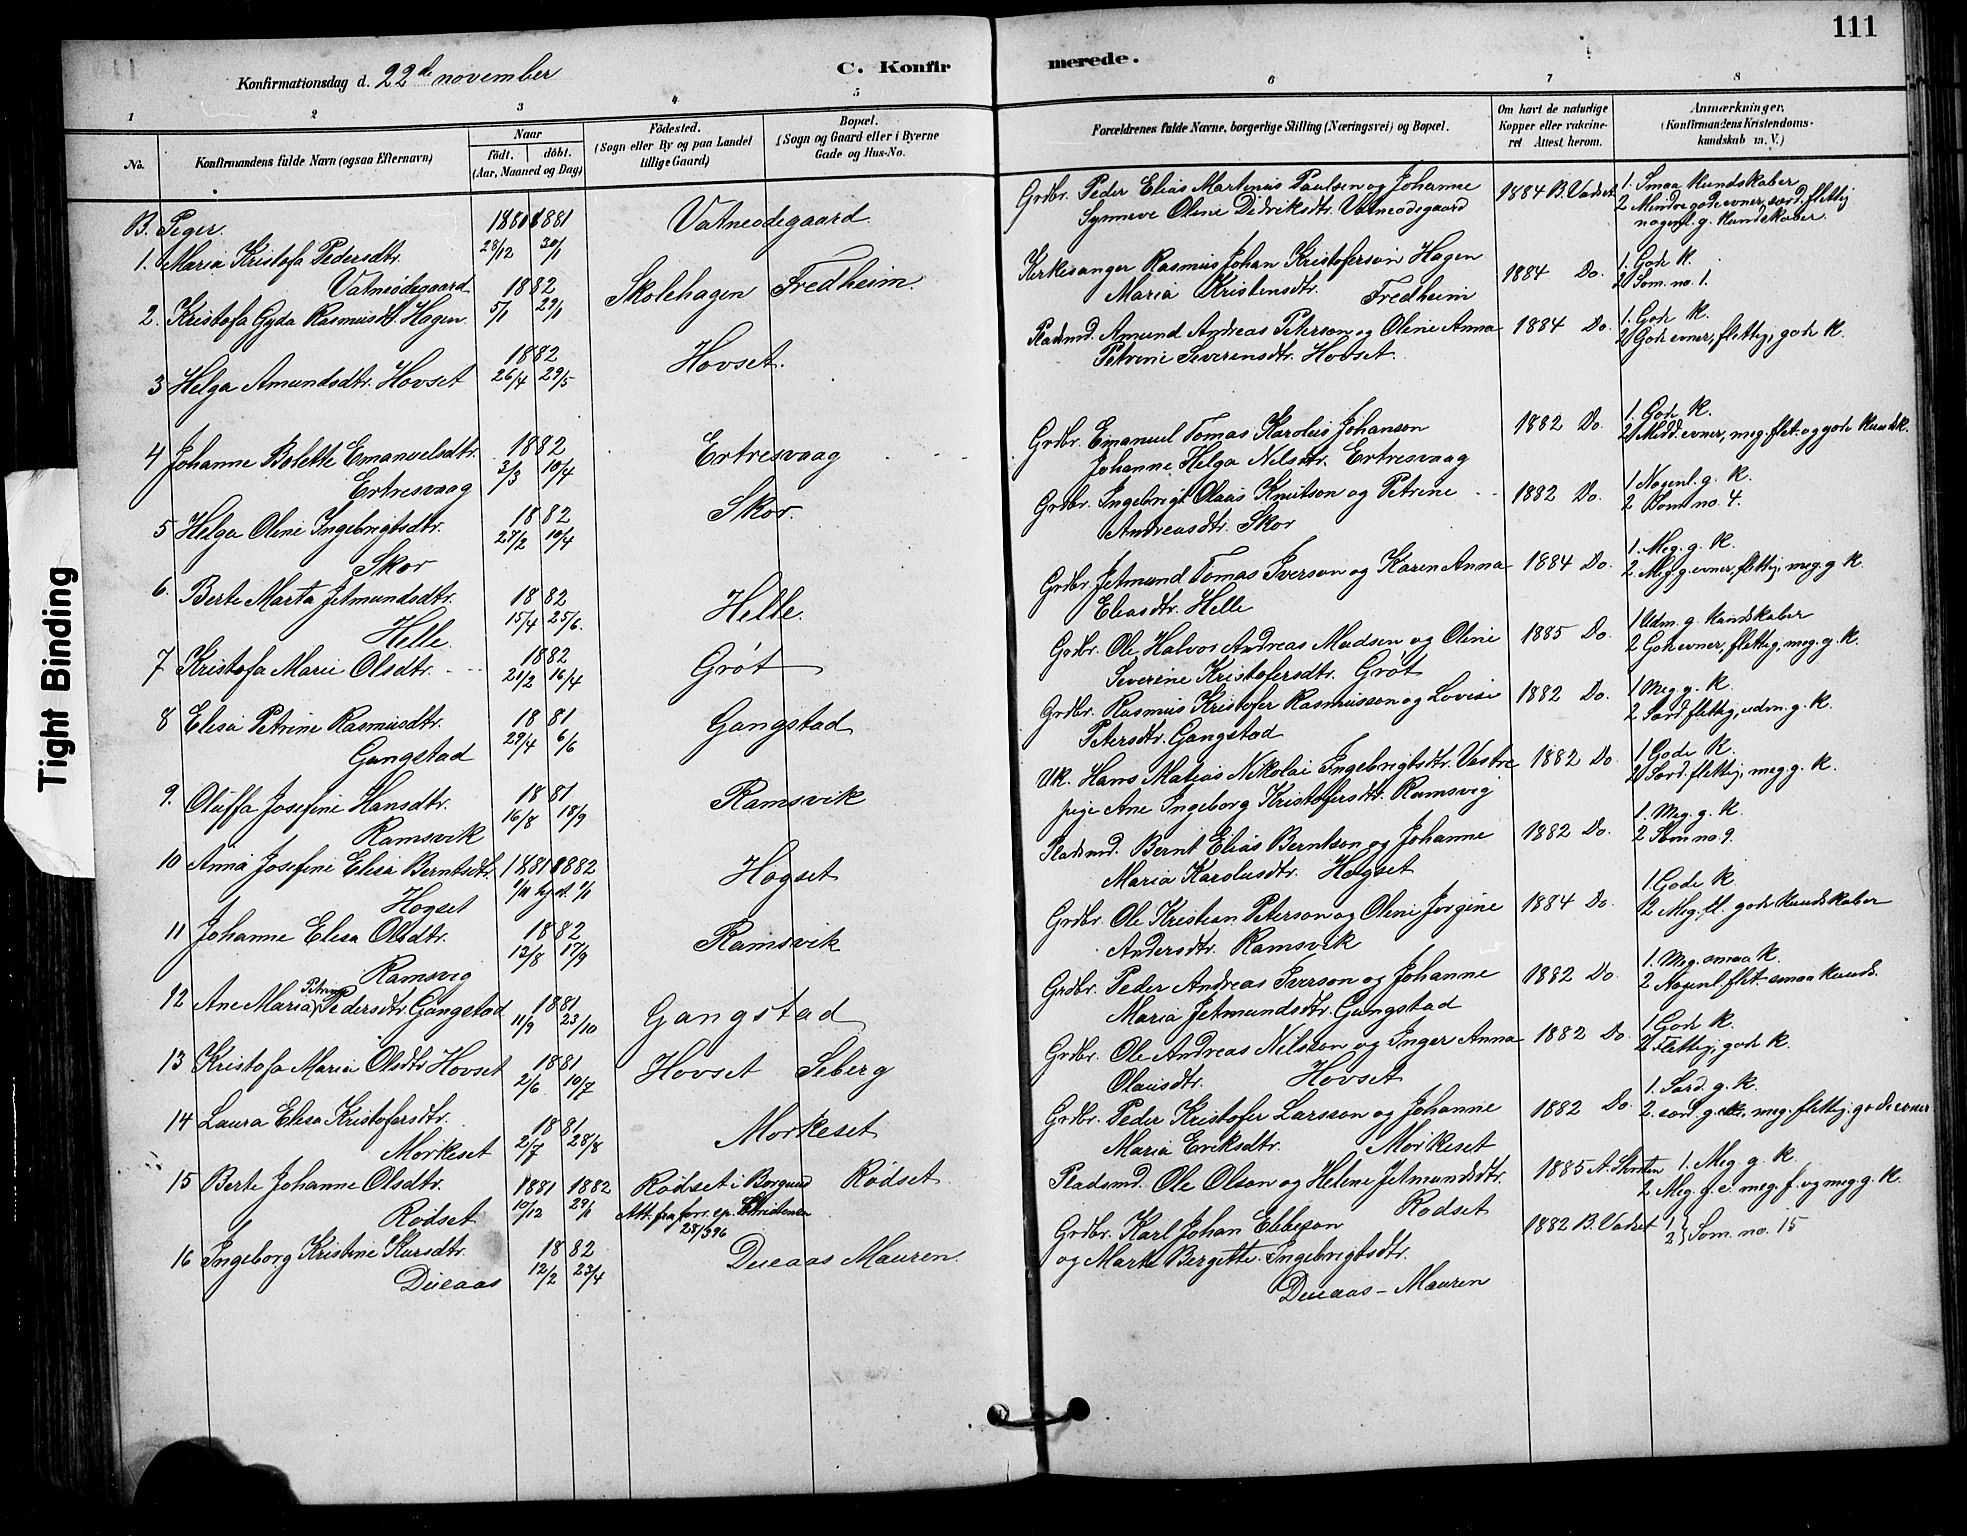 111
Konfirmationsdag d. 22de november
C. Konfirmerede.
1 2 3 4 5 6 7 8
No.
Konfirmandens fulde Navn (ogsaa Efternavn)
Naar
födt. döbt.
(Aar, Maaned og Dag)
Födested.
(Sogn eller By og paa Landet
tillige Gaard)
Bopæl.
(Sogn og Gaard eller i Byerne
Gade og Hus-No.
Forældrenes fulde Navne, borgerlige Stilling (Næringsvei) og Bopæl.
Om havt de naturlige
Kopper eller vakcine-
ret. Attest herom.
Anmærkninger,
(Konfirmandens Kristendoms-
kundskab m. V.)
B. Piger.
1. Maria Kristofa Pedersdtr. Vatneödegaard
1880 28/12 1881 30/1
Vatneödegaard
Grdbr. Peder Elias Martinius Paulsen og Johanne
Synneve Oline Didriksdtr. Vatneödegaard
1884 B. Vadset
1. Smaa Kundskaber
2 Mindre gode evner, særd. flettig
nogenl. g. Kundskaber.
2. Kristofa Gyda Rasmusdt. Hagen
1882 5/1 29/1
Skolehagen Fredheim
Kirkesanger Rasmus Johan Kristoferson Hagen
Maria Kristensdtr. Fredheim
1884 Do.
1. Gode K.
2 Som no. 1.
3 Helga Amundsdtr. Hovset
1882 26/4 29/5
Hovset.
Pladsmd. Amund Andreas Peterson og Oline Anna
Petrine Severinsdtr. Hovset
1884 Do.
1. Gode K.
2 Gode evner, flettig, gode K.
4 Johanne Bolette Emanuelsdtr. Ertresvaag
1882 3/3 10/4
Ertresvaag
Grdbr. Emanuel Tomas Karolus Johanson
Johanne Helga Nilsdtr. Ertresvaag
1882 Do.
1. Gode K.
2 Midd. evner, meg. flet. og gode Kundsk.
5 Helga Oline Ingebrigtsdtr. Skor
1882 27/2 10/4
Skor.
Grdbr. Ingebrigt Olaus Knutson og Petrine
Andreasdtr. Skor
1882 Do.
1 Nogenl. g. K.
2 Som no 4.
6. Berte Marta Jetmundsdtr. Helle
1882 15/4 25/6.
Helle.
Grdbr. Jetmund Tomas Iverson og Karen Anna
Eliasdtr. Helle
1884 Do.
1. Meg. g. K.
2 Meg. g. evner, flettig, meg. g K.
7 Kristofa Marie Olsdtr.
1882 21/2 16/4
Gröt
Grdbr. Ole Halvor Andreas Madsen og Oline
Severine Kristofersdtr. Gröt
1885 Do
1 Udm. g. Kundskaber
2 Gode evner, flettig, meg. g. K.
8 Elisa Petrine Rasmusdtr. Gangstad
1881 29/4 6/6
Gangstad
Grdbr. Rasmus Kristofer Rasmusson og Lovise
Petersdtr. Gangstad
1882 Do.
1 Meg. g. K.
2 Særd. flettig, udm. g. K.
9. Oluffa Josefine Hansdtr. Ramsvik
1881 16/8 18/9
Ramsvik
Uk. Hans Matias Nikolai Ingebrigtsdtr. Vastre
pige Ane Ingeborg Kristofersdtr. Ramsvig
1882 Do
1 Gode K.
2 Særd. flettig, meg. g. K.
10 Anna Josefine Elisa Berntsdtr. Hogset
1881 1882
Hogset
Pladsmd. Bernt Elias Berntson og Johanne
Maria Karolusdtr. Hogset
1882 Do.
1. Meg. g. K.
2 Som no 9.
11 Johanne Elisa Olsdtr. Ramsvig
1882 13/8 17/9
Ramsvik
Grdbr. Ole Kristian Peterson og Oline Jorgine
Andersdtr. Ramsvik
1884 Do.
1. Gode K.
2 Meg. fl. gode Kundskaber
12 Ane Maria Petrine Pedersdtr. Gangstad
1881 11/9 23/10
Gangstad
Grdbr. Peder Andreas Iverson og Johanne
Maria Jetmundsdtr. Gangstad
1882 Do.
1. Meg. smaa K.
2 Nogenl. flet. smaa Kunds.
13 Kristofa Maria Olsdtr Hovset
1881 2/6 10/7
Hovset Seberg
Grdbr. Ole Andreas Nilsson og Inger Anna
Olausdtr. Hovset
1882 Do
1 Gode K.
2 Flettig, gode K.
14 Laura Elisa Kristofersdtr. Mörkeset
1881 2/7 28/8
Morkeset
Grdbr. Peder Kristofer Larsson og Johanne
Maria Eriksdtr. Mörkeset
1882 Do
1. Særd. g. K.
2. særd. g. meg. flettig, gode evner
15 Berte Johanne Olsdtr. Rödset
1881 10/12 1882 29/1
Rödset i Borgund Rödset
Att. fra forr. sp. Christensen
28/3 96
Pladsmd. Ole Olson og Helene Jetmundsdtr.
Rödset
1885
1. Meg. g. K.
2 Meg. g. e. meg. f. og meg. g. K.
16 Ingeborg Kristine Karsdtr. Dueaas
1882 12/2 23/4
Dueaas Mauren.
Grdbr. Karl Johan Ebbeson
og Marte Bergitte Ingebrigtsdtr.
Dueaas - Mauren
1882 B. Vadset
1 2 } Som no. 15
Tight Binding